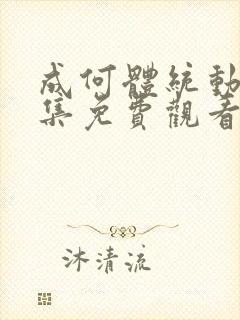 成何體統動
集免費觀看
沐清流